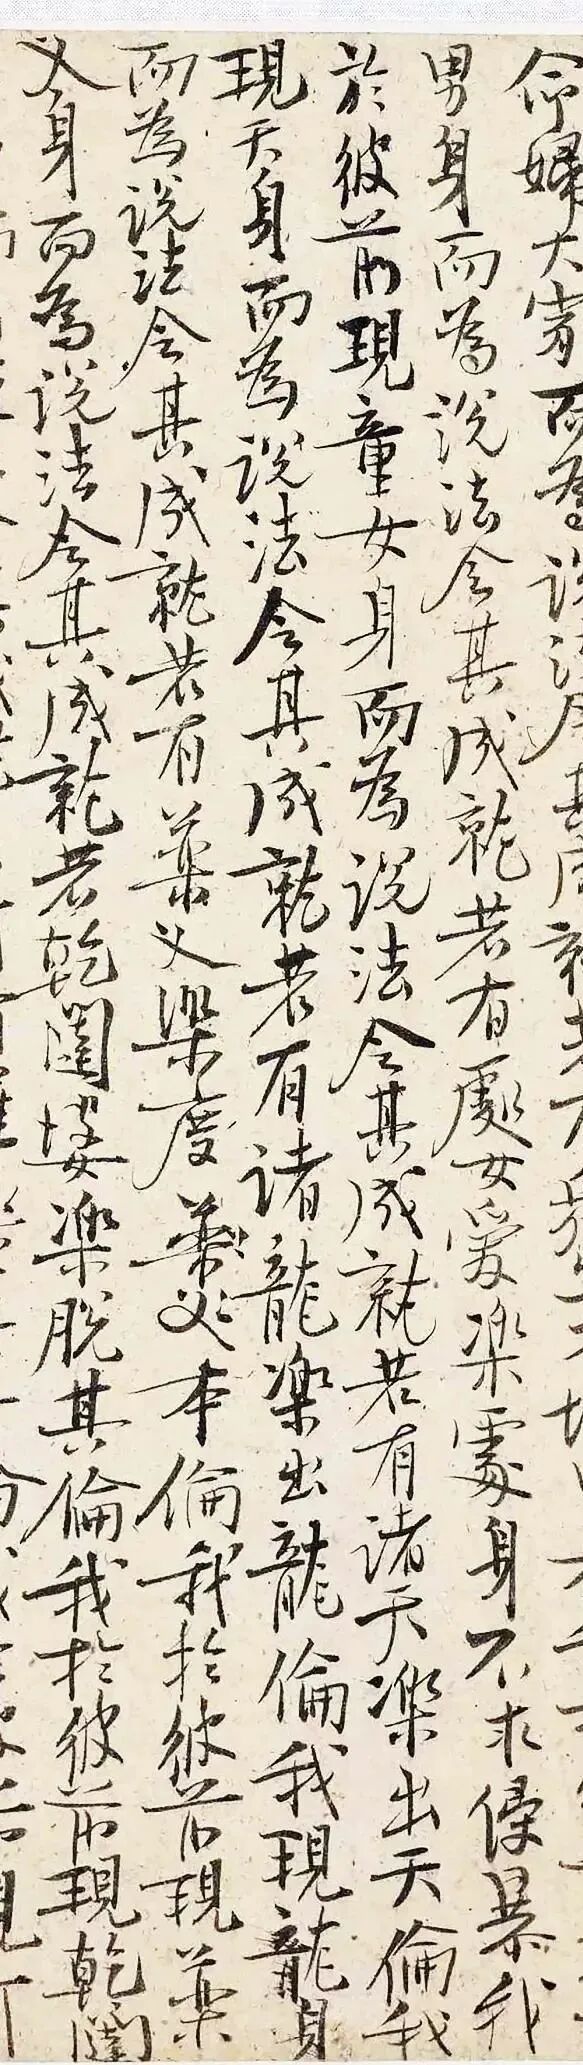 命婦大家而為說法令其成就若有
男身而為說法令其成就若有處女愛樂處身不求侵暴我
於彼前現童女身而為說法令其成就若有諸天樂出天倫我
現天身而為說法令其成就若有諸龍樂出龍倫我現龍身
而為說法令其成就若有藥叉樂度藥叉本倫我於彼前現藥
叉身而為說法令其成就若乾闥婆樂脫其倫我於彼前現乾闥